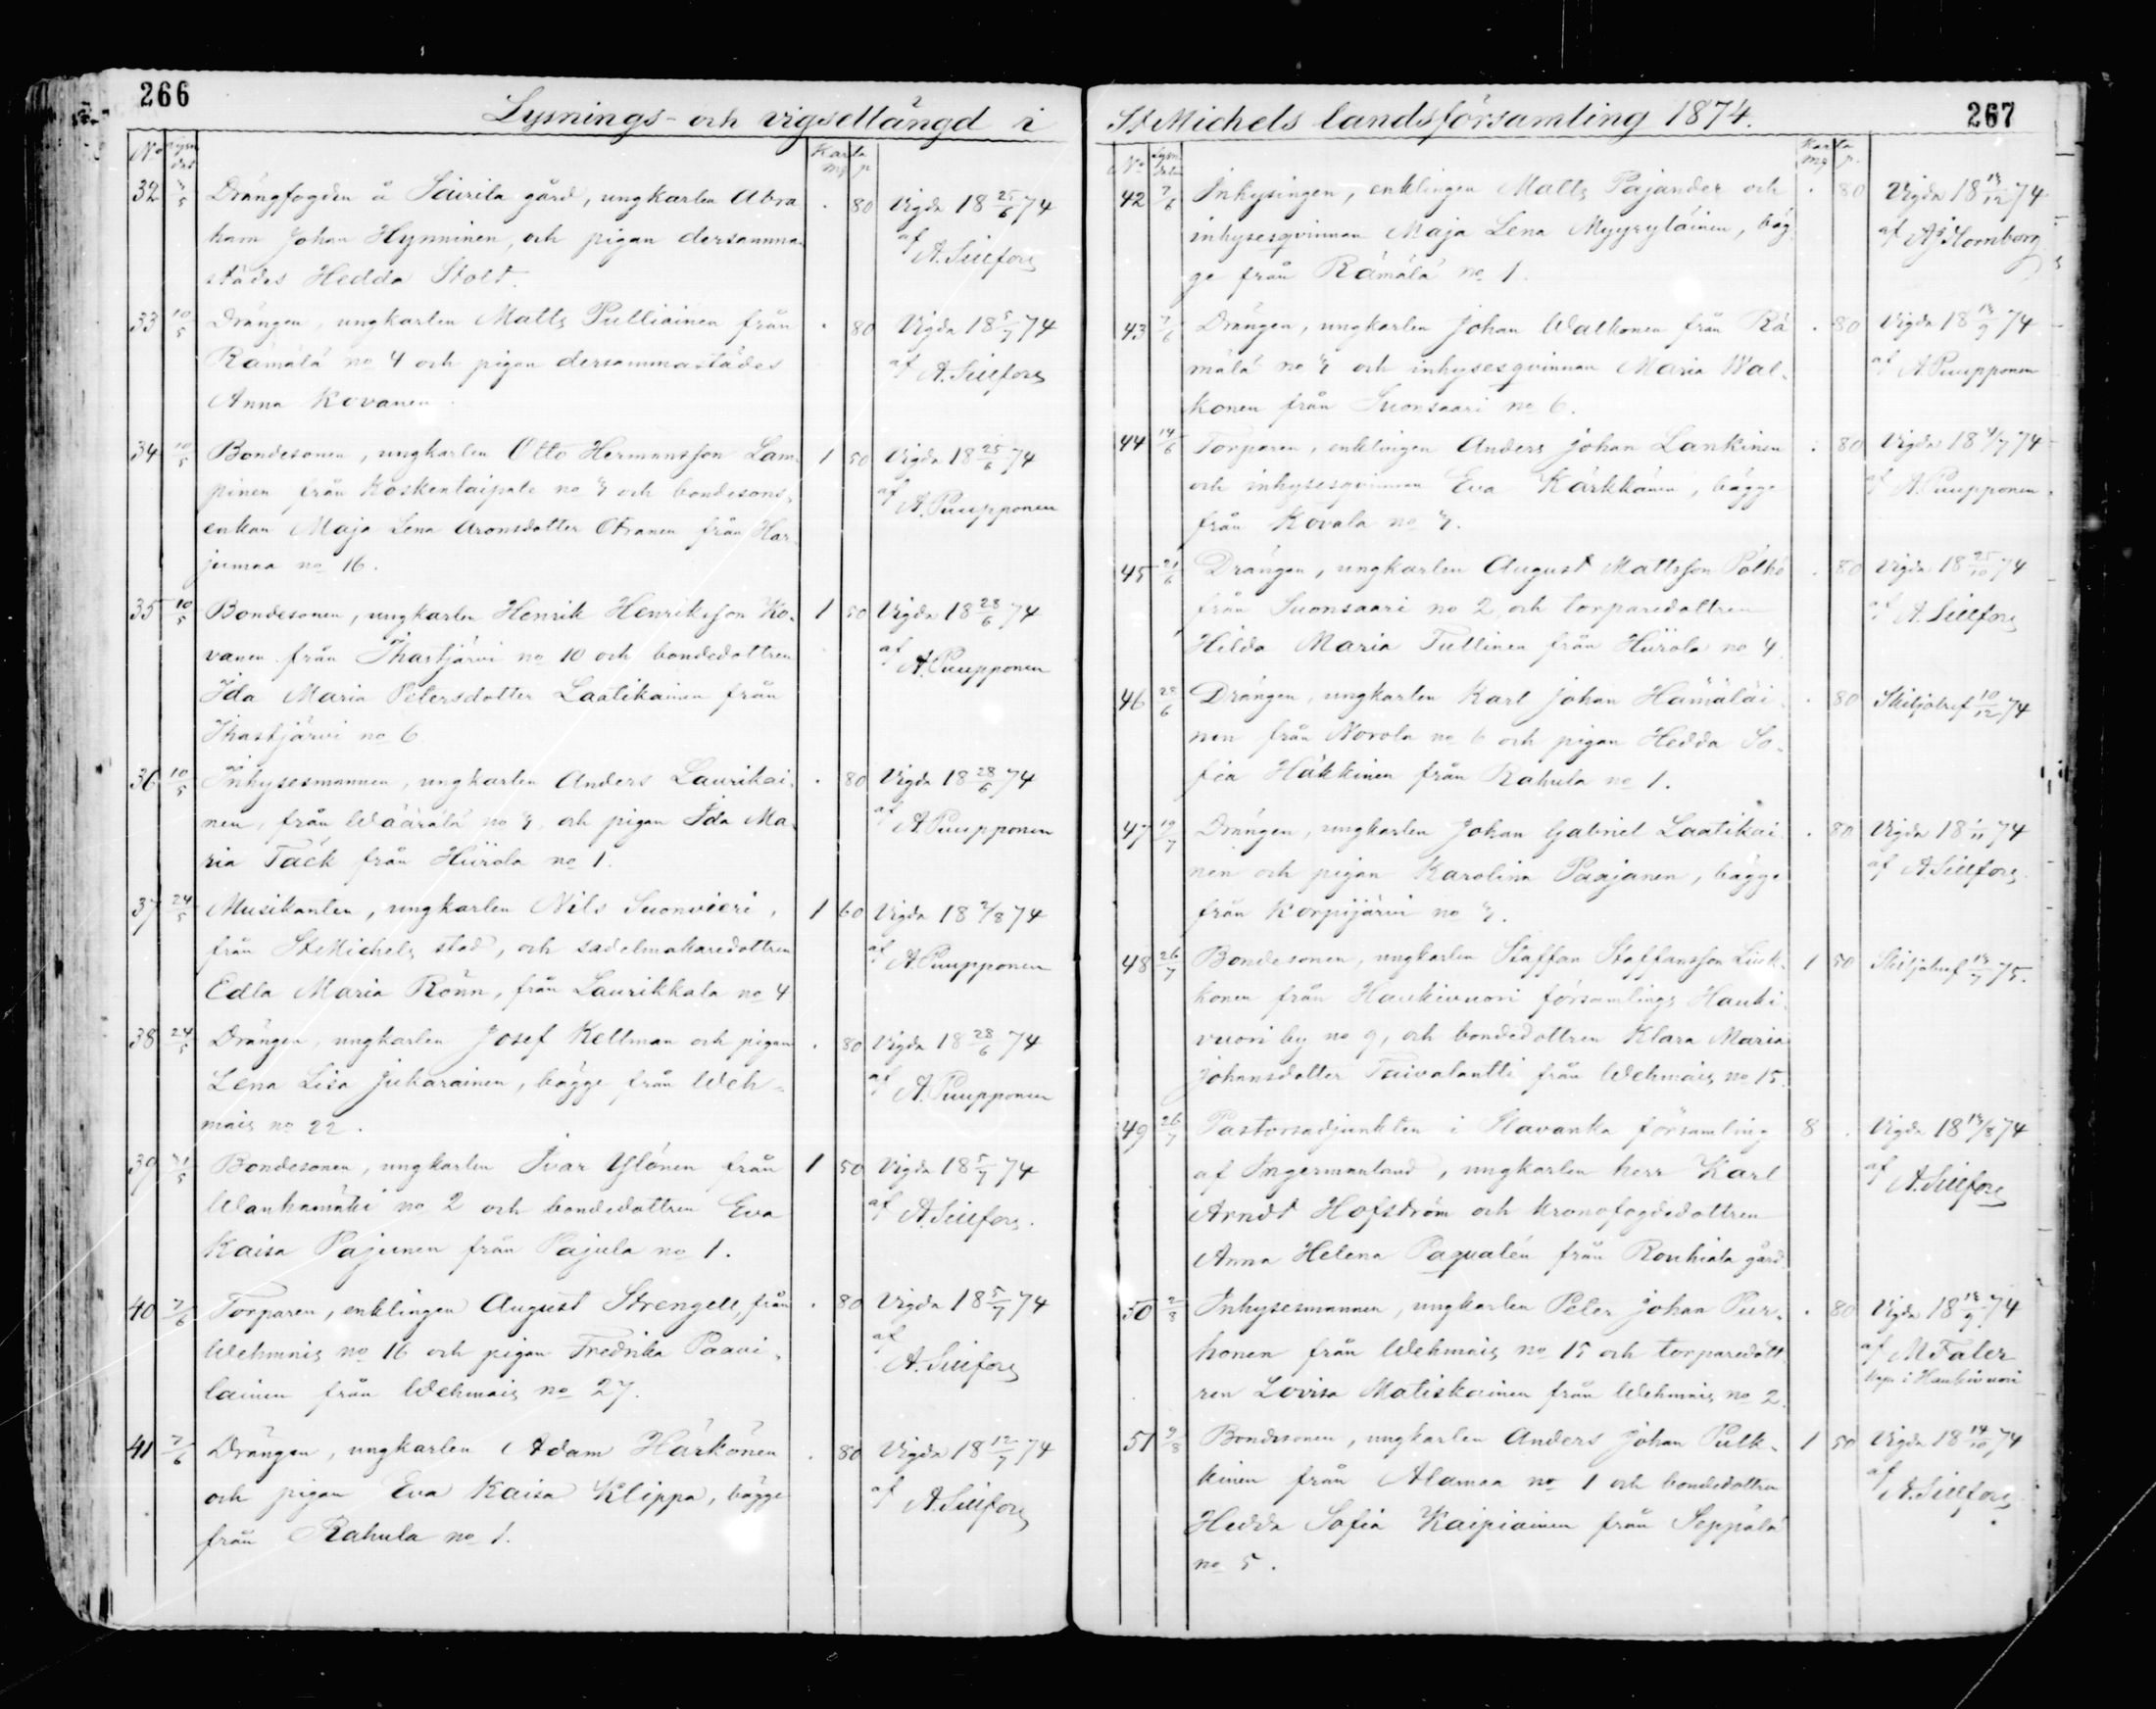 266
Lysnings- och vigsellängd i
No Lysn. Karta
dat mg p
32 3/5 Drängfogden å Sairila gård, ungkarlen Abra . 80 Vigda 18 25/6 74
ham Johan Hynninen, och pigan dersamma- af A. Sillfors
städes Hedda Stolt.
33 10/5 Drängen, ungkarlen Matts Pulliainen från . 80 Vigda 18 5/7 74
Rämälä no 4 och pigan dersammastädes af A. Sillfors
Anna Kovanen.
34 10/5 Bondesonen, ungkarlen Otto Hermansson Lam- 1 50 Vigda 18 25/6 74
pinen från Koskentaipale no 3 och bondesons- af A. Puupponen
enkan Maja Lena Aronsdotter Otranen från Har-
jumaa no 16.
35 10/5 Bondesonen, ungkarlen Henrik Henriksson Ko- 1 50 Vigda 18 28/6 74
vanen från Ihastjärvi no 10 och bondedottren af A. Puupponen
Ida Maria Petersdotter Laatikainen från
Ihastjärvi no 6
36 10/5 Inhysesmannen, ungkarlen Anders Laurikai- . 80 Vigda 18 28/6 74
nen, från Wäärälä no 3, och pigan Ida Ma- af A. Puupponen
ria Täck från Hiirola no 1.
37 24/5 Musikanten, ungkarlen Nils Suonvieri, 1 60 Vigda 18 2/8 74
från St Michels stad, och sadelmakaredottren af A. Puupponen
Edla Maria Rönn, från Laurikkala no 4
38 24/5 Drängen, ungkarlen Josef Kellman och pigan . 80 Vigda 18 28/6 74
Lena Lisa Jukarainen, bägge från Weh- af A. Puupponen
mais no 22.
39 31/5 Bondesonen, ungkarlen Ivar Ylönen från 1 50 Vigda 18 5/7 74
Wanhamäki no 2 och bondedottren Eva af A. Sillfors.
Kaisa Pajunen från Pajula no 1.
40 7/6 Torparen, enklingen August Strengell, från . 80 Vigda 18 5/7 74
Wehmais no 16 och pigan Fredrika Paavi- af A. Sillfors
lainen från Wehmais no 27.
41 7/6 Drängen, ungkarlen Adam Härkönen . 80 Vigda 18 12/7 74
och pigan Eva Kaisa Klippa, bägge af A. Sillfors
från Rahula no 1.
St Michels landsförsamling 1874.
267
No Lysn. Karta
mg p.
42 7/6 Inhysingen, enklingen Matts Pajander och . 80 Vigda 18 /12 74
inhysesqvinnan Maja Lena Myyryläinen, bäg- af Aj Hornborg
ge från Rämälä no 1.
43 7/6 Drängen, ungkarlen Johan Walkonen från Rä . 80 Vigda 18 13/9 74
mälä no 3 och inhysesqvinnan Maria Wal- af A Puupponen
konen från Suonsaari no 6.
44 14/6 Torparen, enklingen Anders Johan Lankinen . 80 Vigda 18 /7 74
och inhysesqvinnan Eva Kärkkänen, bägge af A. Puupponen.
från Kovala no 3.
45 21/6 Drängen, ungkarlen August Mattsson Pölhö . 80 Vigda 18 25/10 74
från Suonsaari no 2 och torparedottren af A. Sillfors
Hilda Maria Tullinen från Hiirola no 4.
46 /6 Drängen, ungkarlen Karl Johan Hämäläi- . 80 Skiljobref 10/12 74
nen från Norola no 6 och pigan Hedda So-
fia Häkkinen från Rahula no 1.
47 19/7 Drängen, ungkarlen Johan Gabriel Laatikai . 80 Vigda 18 1/11 74
nen och pigan Karolina Paajanen, bägge af A Sillfors.
från Korpijärvi no 3.
48 26/7 Bondesonen, ungkarlen Staffan Staffansson Liuk- 1 50 Skiljobref 13/7 75.
konen från Haukivuori församlings Hauki-
vuori by no 9, och bondedottren Klara Maria
Johansdotter Taivalantti från Wehmais no 15.
49 26/7 Pastorsadjunkten i Slavanka församling 8 . Vigda 18 13/8 74
af Ingermanland, ungkarlen herr Karl af A. Sillfors
Arndt Hofström och kronofogdedottren
Anna Helena Paqualén från Rouhiala gård
50 2/8 Inhysesmannen, ungkarlen Peter Johan Pur- . 80 Vigda 18 /9 74
honen från Wehmais no 15 och torparedott- af M Faler
ren Lovisa Matiskainen från Wehmais no 2. i Haukivuori
51 9/8 Bondesonen, ungkarlen Anders Johan Pulk- 1 50 Vigda 18 14/10 74
kinen från Alamaa no 1 och bondedottren af A. Sillfors
Hedda Sofia Kaipiainen från Seppälä
no 5.